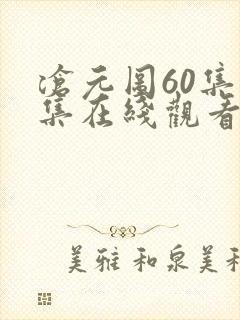 滄元圖60集
集在綫觀看
美雅 和泉美和